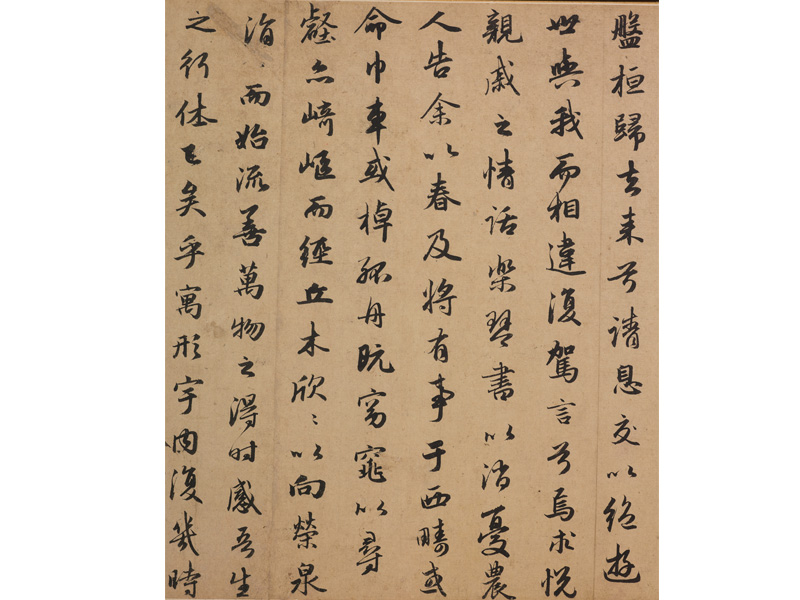 盤桓歸去来兮請息交以絶遊
世與我而相違復駕言兮焉求悅
親戚之情話樂琴書以消憂農
人告余以春及將有事于西疇或
命巾車或棹孤舟既窈窕以尋
壑亦崎嶇而經丘木欣〻以向榮泉
涓〻而始流善萬物之得時感吾生
之行休已矣乎寓形宇内復幾時